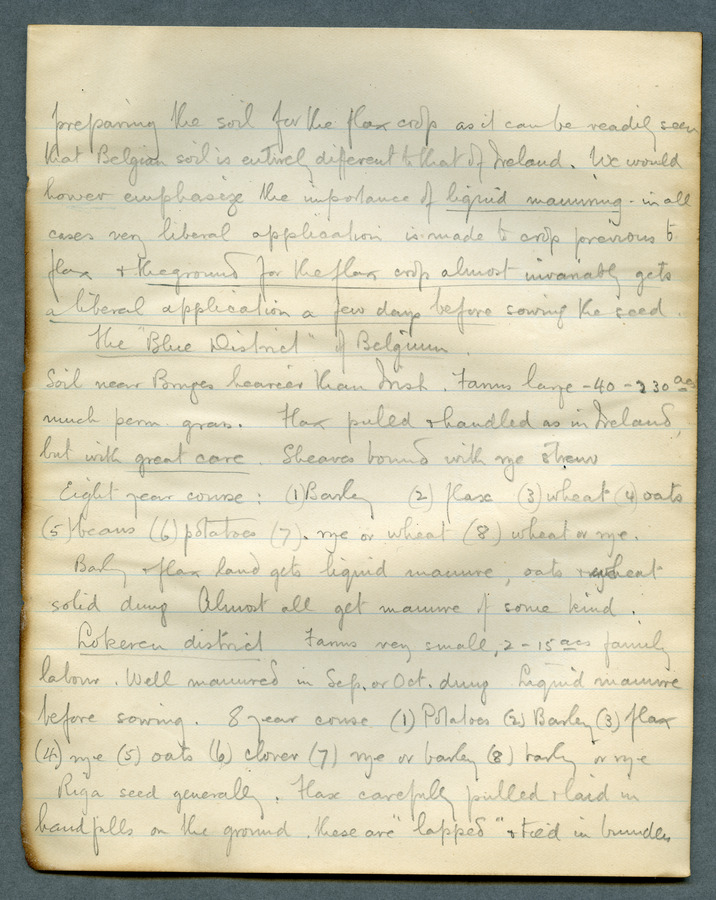 preparing the soil for the flax crop as it can be readily seen
that Belgian soil is entirely different to that of Ireland. We would
hower emphasize the importance of liquid manuring - in all
cases very liberal application is made to crop previous to
flax & the ground for the flax crop almost invariably gets
a liberal application a few days before sowing the seed.
The "Blue District" of Belgium.
Soil near Bruges heavier than Irish. Farms large - 40 - 230 acs
much perm. grass. Flax pulled & handled as in Ireland,
but with great care. Sheaves bound with rye straw
Eight year course: (1) Barley (2) flax (3) wheat (4) oats
(5) beans (6) potatoes (7). rye or wheat (8) wheat or rye.
Barley & flax land gets liquid manure, oats & wheat
solid dung Almost all get manure of some kind.
Lokeren district Farms very small, 2 - 15 acs family
labour. Well manured in Sep. or Oct. dung Liquid manure
before sowing. 8 year course (1) Potatoes (2) Barley (3) flax
(4) rye (5) oats (6) clover (7) rye or barley (8) barly or rye
Riga seed generally. Flax carefully pulled & laid in
handfulls on the ground. these are "lapped" & tied in bundles